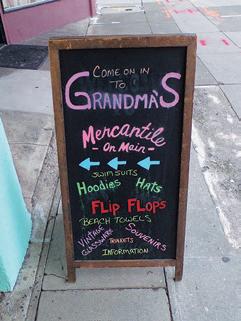 COME ON IN
TO
GRANDMA'S
Mercantile
- On Main -
SWIMSUITS
Hoodies HATS
FLIP FLOPS
BEACH TOWELS
VINTAGE GLASSWARE
TRINKETS
SOUVENIRS
INFORMATION